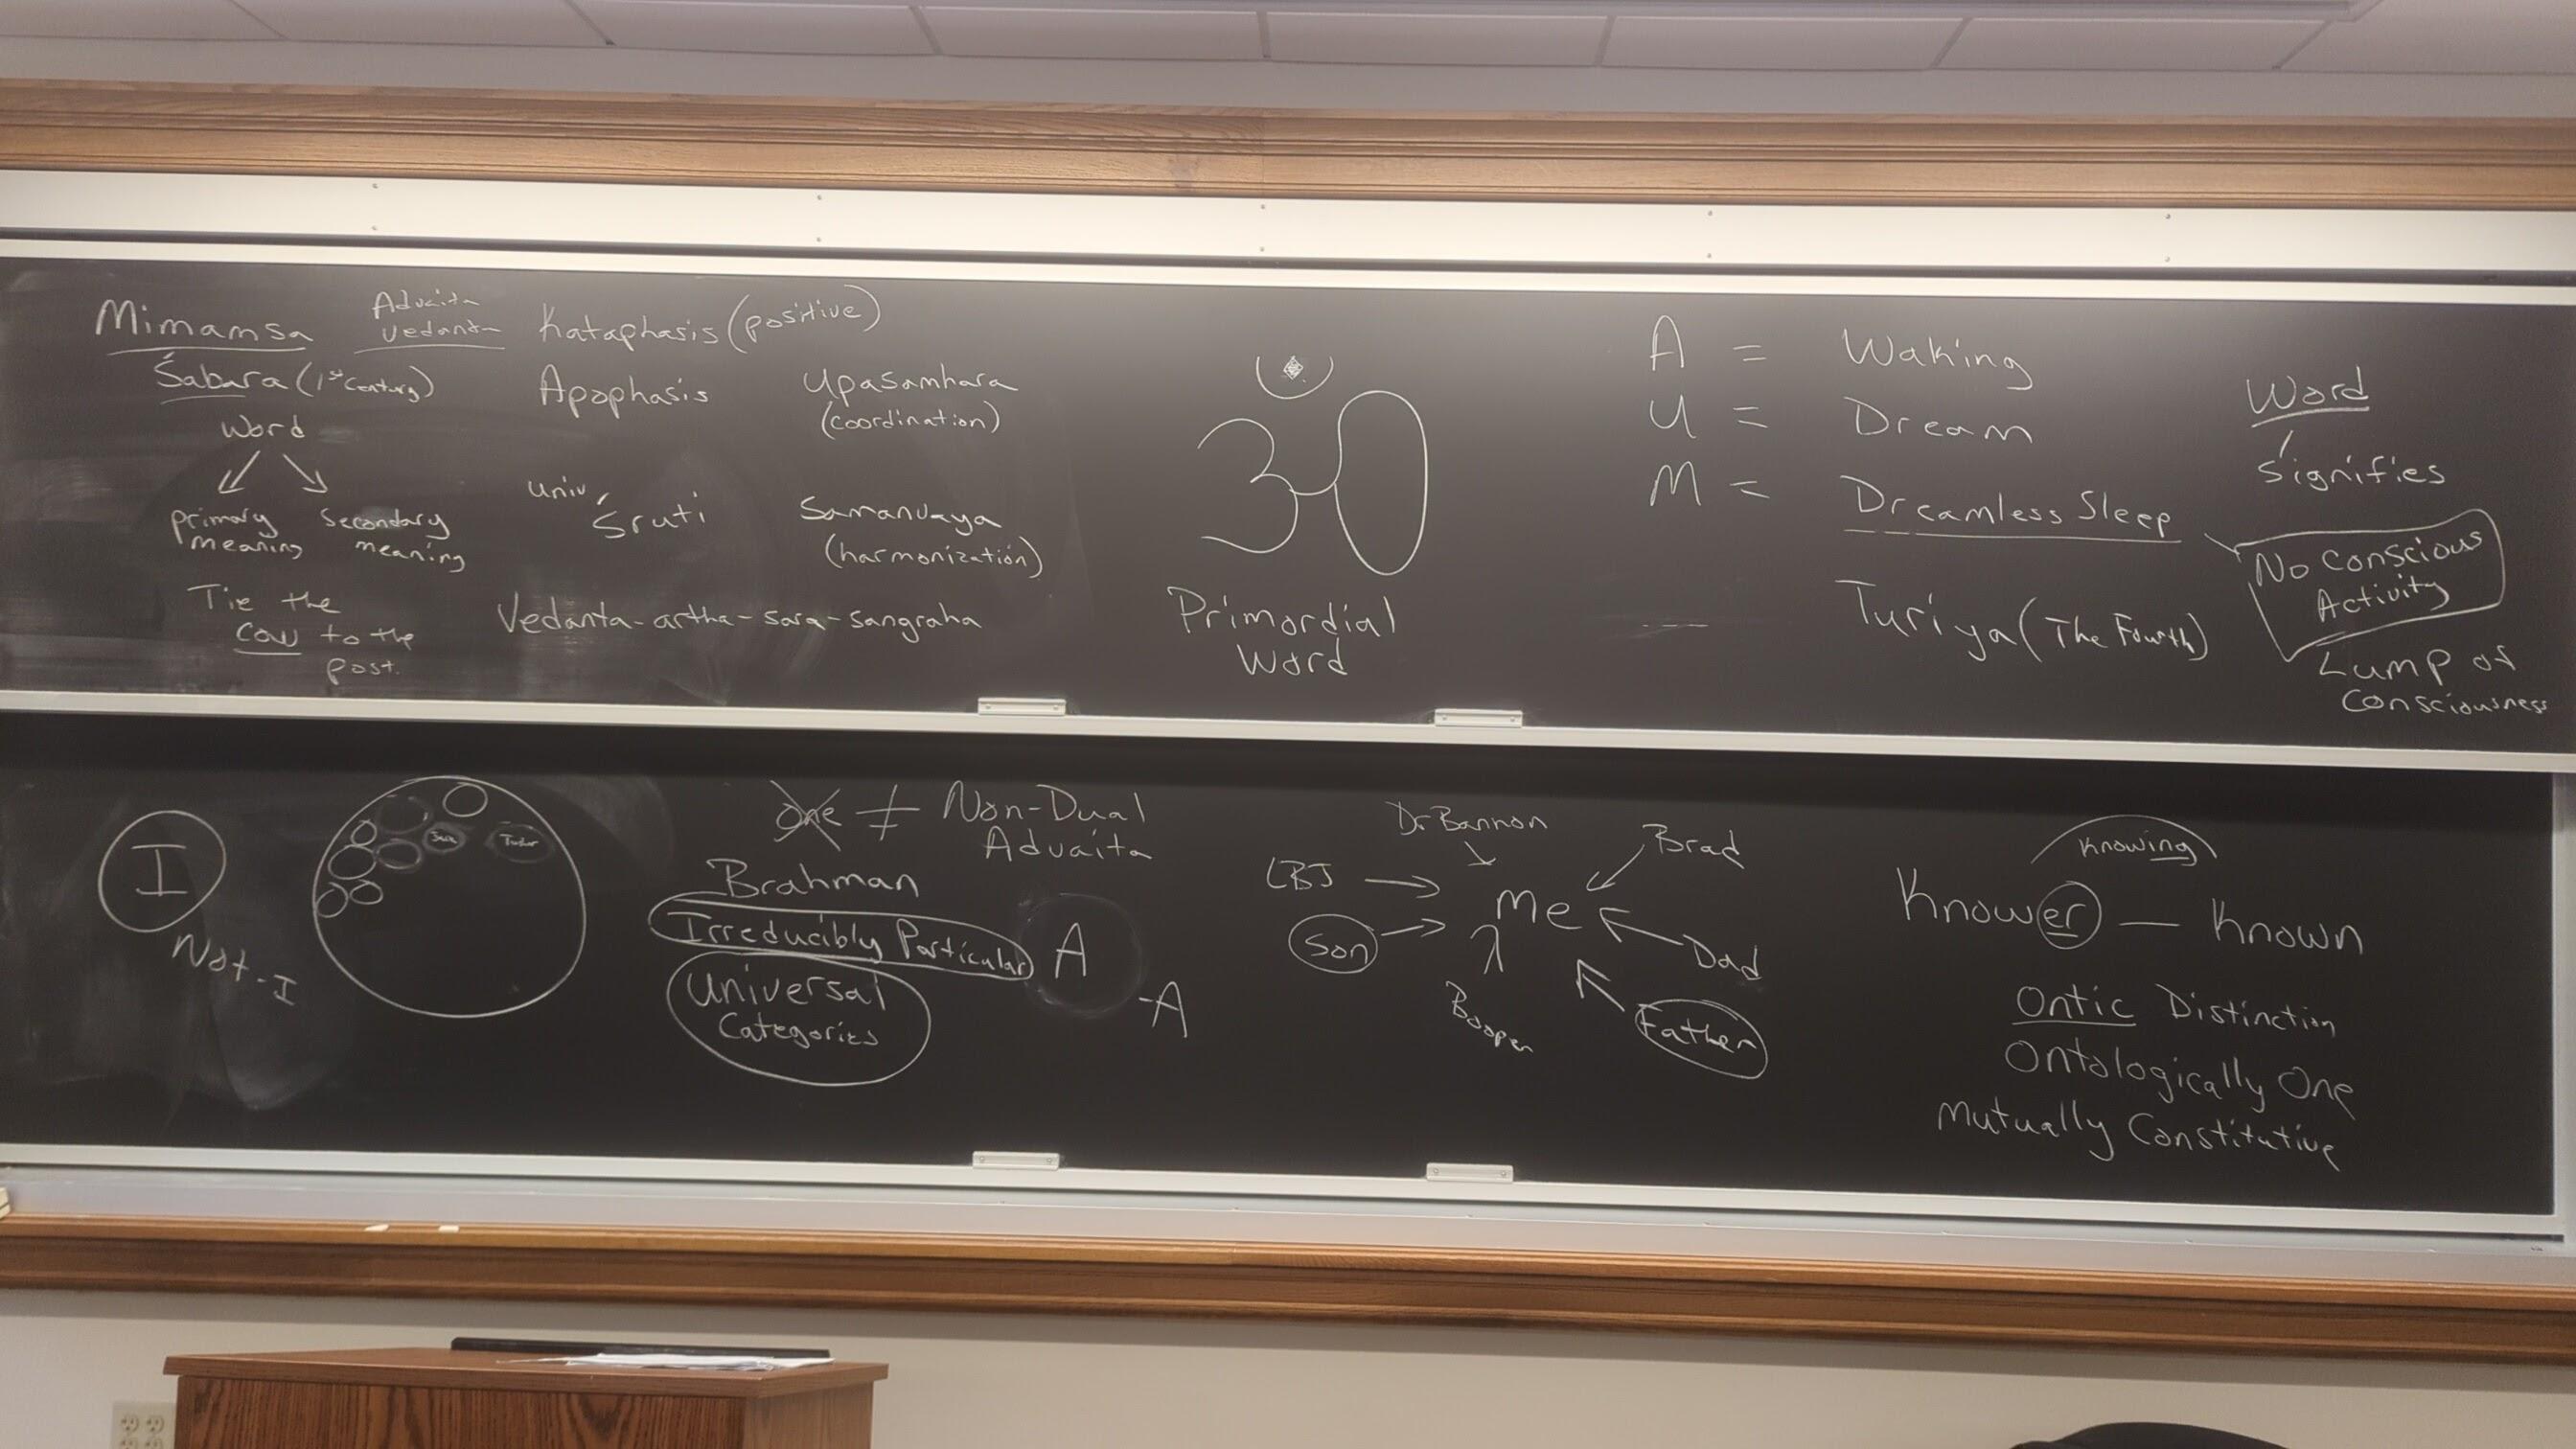 Mimamsa
Śabara (1st Century)
Word
primary meaning
Secondary meaning
Tie the
cow to the
post.
Advaita
Vedanta
Kataphasis (positive)
Apophasis
Upasamhara
(coordination)
Univ.
Śruti
Samanvaya
(harmonization)
Vedanta-artha-sara-sangraha
ॐ
Primordial
Word
A = Waking
U = Dream
M = Dreamless Sleep
Turiya (The Fourth)
Word
Signifies
No Conscious
Activity
Lump of
Consciousness
I
Not-I
One ≠ Non-Dual
Advaita
Brahman
Irreducibly Particular
Universal
Categories
A
-A
Dr Bannon
Brad
LBJ
Me
Son
Dad
Father
Knowing
Knower — Known
Ontic Distinction
Ontologically One
Mutually Constitutive